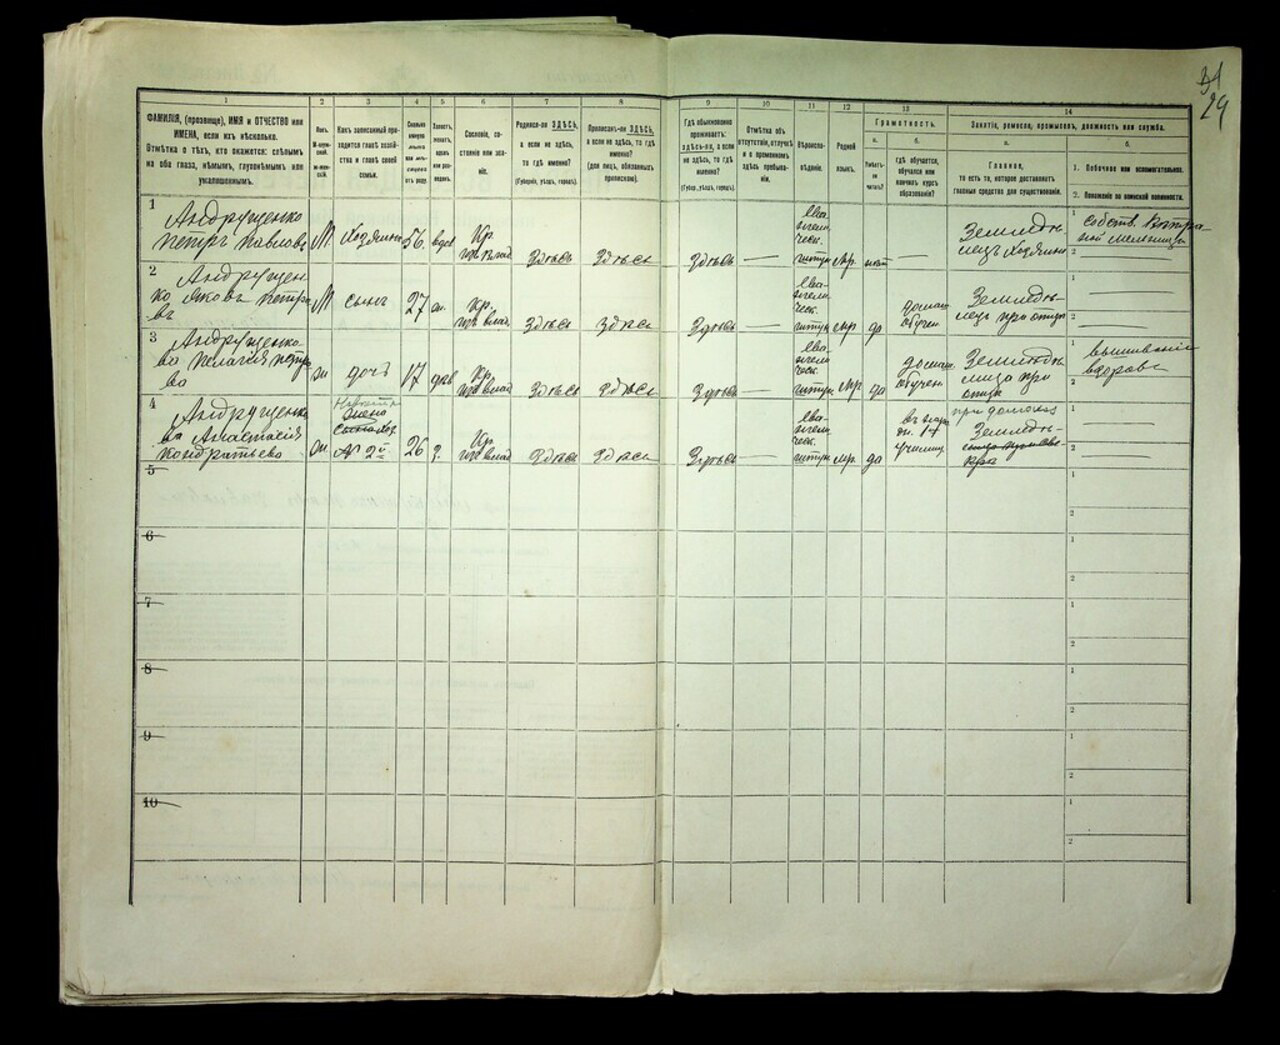 31
29
1 2 3 4 5 6 7 8 9 10 11 12 13 14
ФАМИЛІЯ, (прозвище), ИМЯ и ОТЧЕСТВО или
ИМЕНА, если ихъ нѣсколько.
Отмѣтка о тѣхъ, кто окажется: слѣпымъ
на оба глаза, нѣмымъ, глухонѣмымъ или
умалишеннымъ.
Полъ.
М-мужской.
Ж-женскій.
Какъ записанный приходится
главѣ хозяйства
и главѣ своей
семьи.
Сколько
минуло
лѣтъ
или мѣсяцевъ
отъ роду.
Холостъ,
женатъ,
вдовъ
или разведенъ.
Сословіе, состояніе
или званіе.
Родился-ли ЗДѢСЬ,
а если не здѣсь,
то гдѣ именно?
(Губернія, уѣздъ, городъ).
Приписанъ-ли ЗДѢСЬ,
а если не здѣсь, то гдѣ
именно?
(Для лицъ, обязанныхъ
припискою).
Гдѣ обыкновенно
проживаетъ:
здѣсь-ли, а если
не здѣсь, то гдѣ
именно?
(Губер., уѣздъ, городъ).
Отмѣтка объ
отсутствіи, отлучкѣ
и о временномъ
здѣсь пребываніи.
Вѣроисповѣданіе.
Родной
языкъ.
Грамотность.
а.
Умѣетъ-ли
читать?
б.
гдѣ обучается,
обучался или
кончилъ курсъ
образованія?
Занятіе, ремесло, промыселъ, должность или служба.
а.
Главное,
то есть то, которое доставляетъ
главныя средства для существованія.
б.
1. Побочное или вспомогательное.
2. Положеніе по воинской повинности.
1
Андрущенко
Петръ Павловъ
М
Хозяинъ
56
вдов
Кр.
Здѣсь
Здѣсь
Здѣсь
—
мр.
нѣт
Земледѣлецъ
Хозяинъ
1
собств. Вѣтряной
мельницы
2
2
Андрущенко
Яковъ Петровъ
М
сынъ
27
Кр.
Здѣсь
Здѣсь
Здѣсь
—
мр
да
домаш
обучен
Земледѣлецъ
при отцѣ
1
2
3
Андрущенкова
Пелагія Петрова
ж
дочь
17
дѣв
Кр.
Здѣсь
Здѣсь
Здѣсь
—
мр
да
домаш
обучен
Земледѣлица
при
отцѣ
1
вышиваніе
2
4
Андрущенкова
Анастасія
Кондратьево
ж
26
Кр
Здѣсь
Здѣсь
Здѣсь
—
мр.
да
училищ
Земледѣ-
1
2
5
1
2
6
1
2
7
1
2
8
1
2
9
1
2
10
1
2